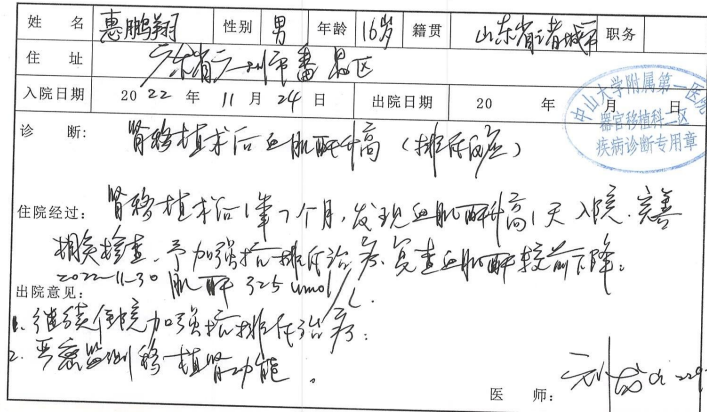 姓 名 惠鹏翔 性别 男 年龄 16岁 籍贯 山东省诸城市 职务
住 址 广东省广州市番禺区
入院日期 2022 年 11 月 24 日 出院日期 20 年 月 日
中山大学附属第一医院
器官移植科二区
疾病诊断专用章
诊 断: 肾移植术后血肌酐升高(排斥反应)
住院经过: 肾移植术后1年7个月,发现血肌酐升高1天入院.完善
相关检查.予加强抗排斥治疗.复查血肌酐较前下降。
2022-11-30 肌酐 325 umol/L.
出院意见:
1. 继续住院加强抗排斥治疗;
2. 严密监测移植肾功能。
医 师: